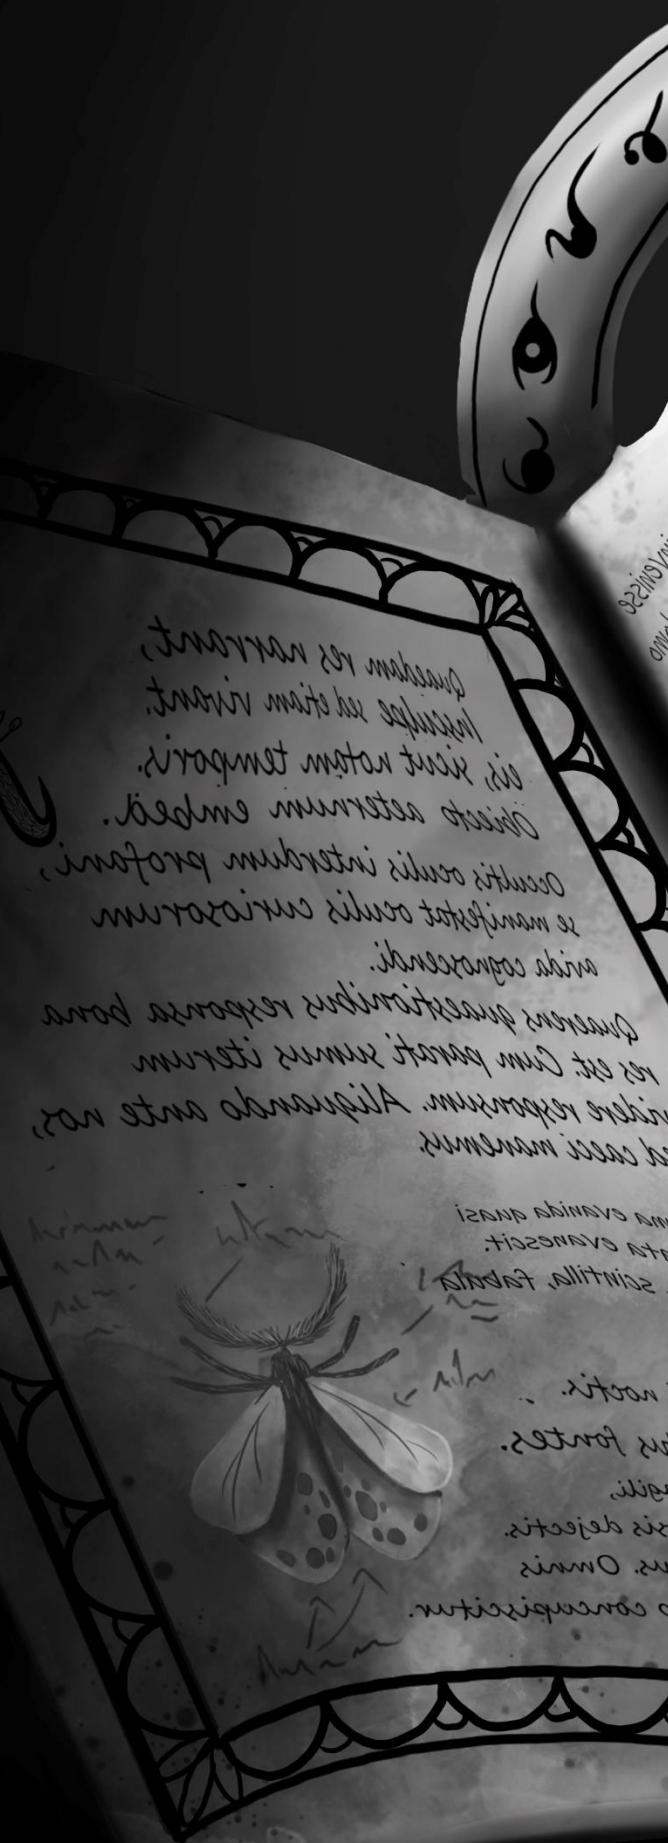 Quaedam res narrant,
Insculpe sed etiam vivant.
eis, sicut notam temporis.
Obiecto aeternum embed.
Occultis oculis interdum profani,
se manifestat oculis curiosorum
avida cognoscendi.
Quaerens quaestionibus responsa bona
res est. Cum parati sumus iterum
videre responsum. Aliquando ante nos,
sed caeci manemus.
evanida quasi
evanescit.
scintilla, fabula
noctis.
fontes.
dejectis.
Omnis
concupiscitur.
invenisse